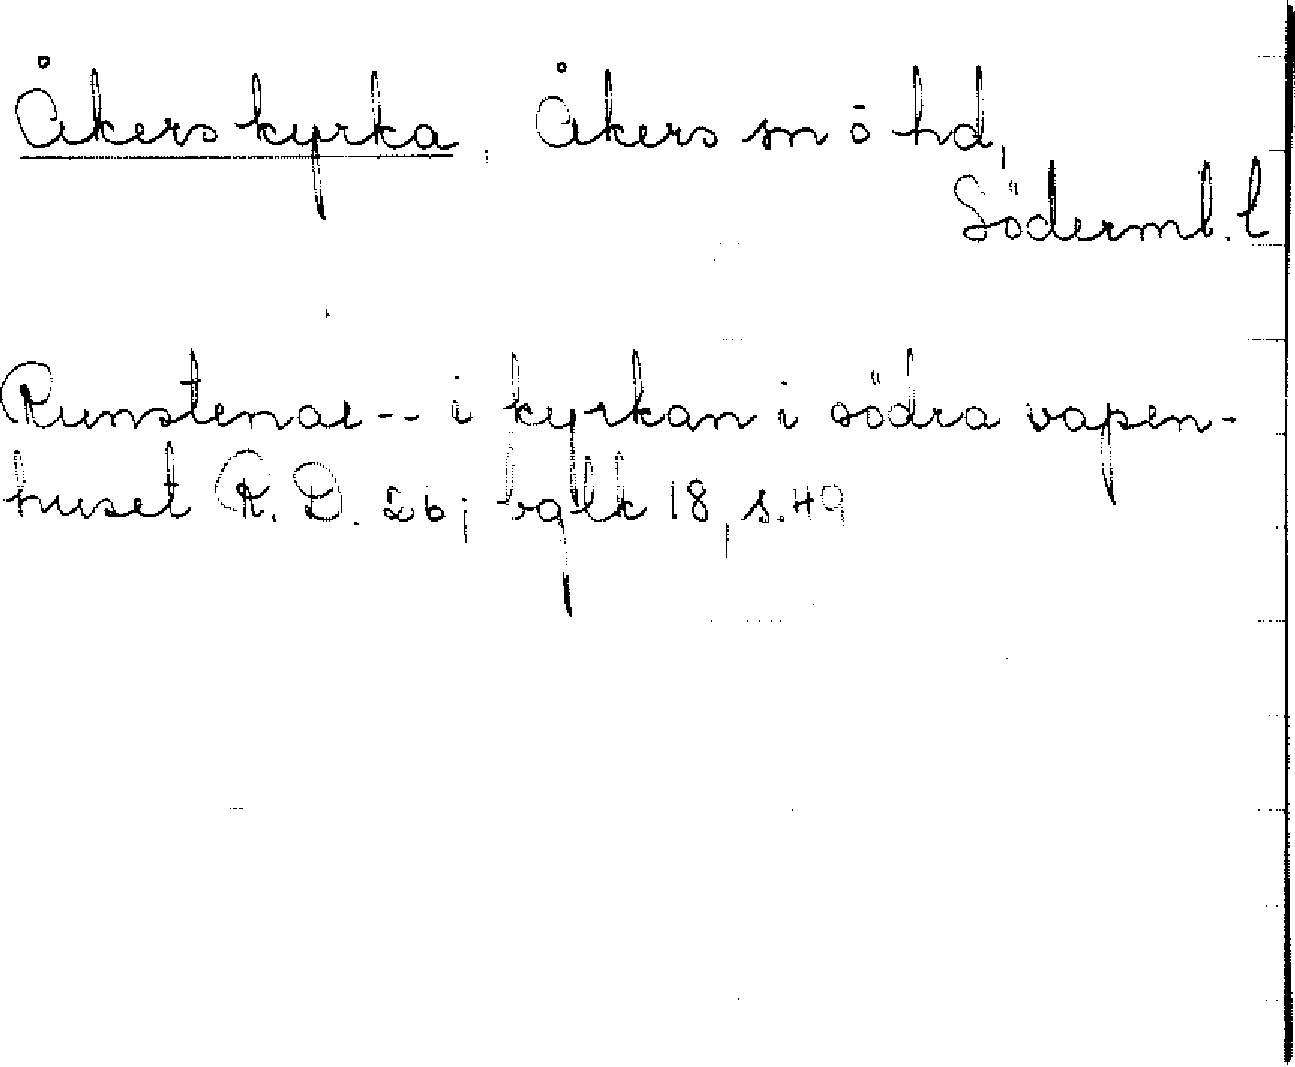 Åkers kyrka, Åkers sn o hd,
Söderml. l
Runstenar -- i kyrkan i södra vapen-
huset R. D. 26; bglk 18, s. 49